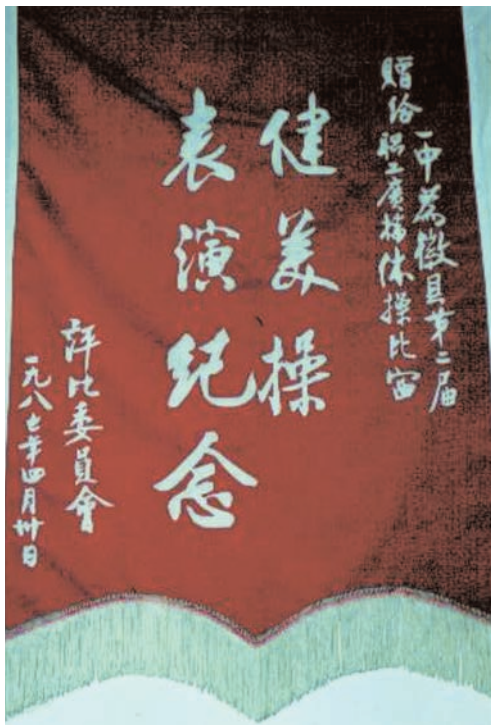 赠给
一中為徽县第二届
职工廣播体操比赛
健美操
表演纪念
評比委員會
一九八七年四月卅日